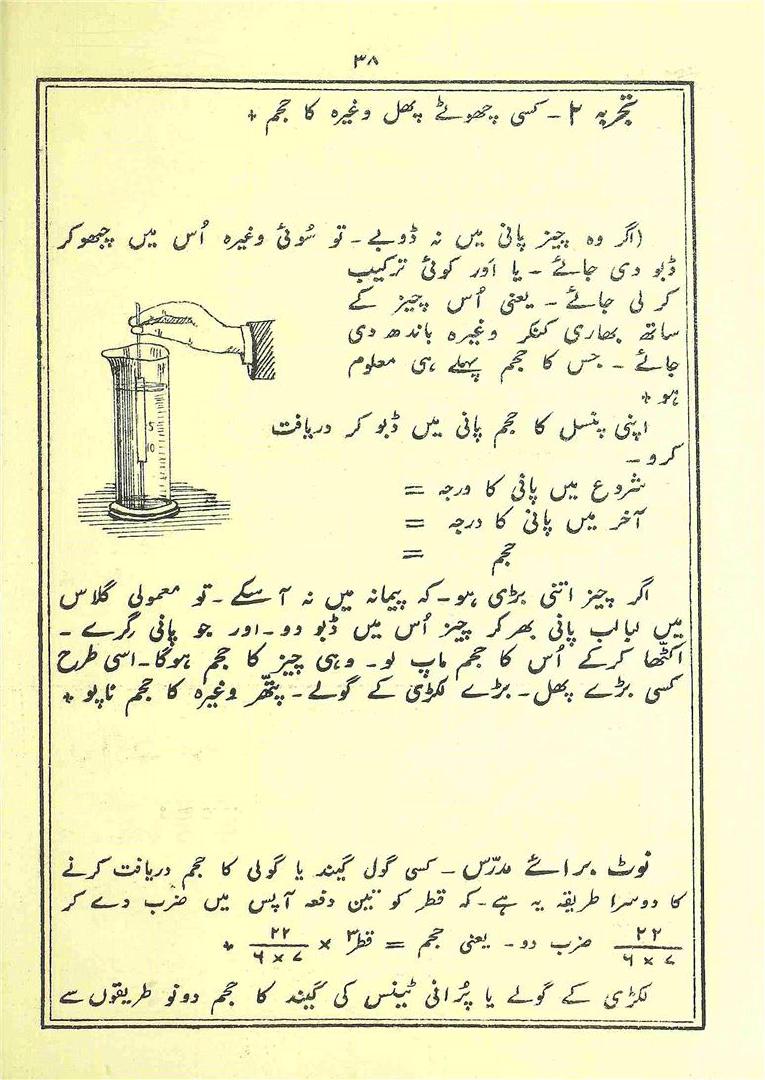 ۳۸
تجربہ ۲ - کسی چھوٹے پھل وغیرہ کا حجم +
(اگر وہ چیز پانی میں نہ ڈوبے - تو سُوئی وغیرہ اُس میں چبھو کر
ڈبو دی جائے - یا اَور کوئی ترکیب
کر لی جائے - یعنی اُس چیز کے
ساتھ بھاری کنکر وغیرہ باندھ دی
جائے - جس کا حجم پہلے ہی معلوم
ہو +
اپنی پنسل کا حجم پانی میں ڈبو کر دریافت
کرو -
شروع میں پانی کا درجہ =
آخر میں پانی کا درجہ =
حجم =
5
10
اگر چیز اتنی بڑی ہو - کہ پیمانہ میں نہ آ سکے - تو معمولی گلاس
میں لبالب پانی بھر کر چیز اُس میں ڈبو دو - اور جو پانی گرے -
اکٹھا کرکے اُس کا حجم ماپ لو - وہی چیز کا حجم ہوگا - اسی طرح
کسی بڑے پھل - بڑے لکڑی کے گولے - پتھّر وغیرہ کا حجم ناپو +
نوٹ برائے مدرّس - کسی گول گیند یا گولی کا حجم دریافت کرنے
کا دوسرا طریقہ یہ ہے - کہ قطر کو تین دفعہ آپس میں ضرب دے کر
۲۲/۶×۷ ضرب دو - یعنی حجم = قطر۳ × ۲۲/۶×۷ +
لکڑی کے گولے یا پُرانی ٹینس کی گیند کا حجم دونو طریقوں سے